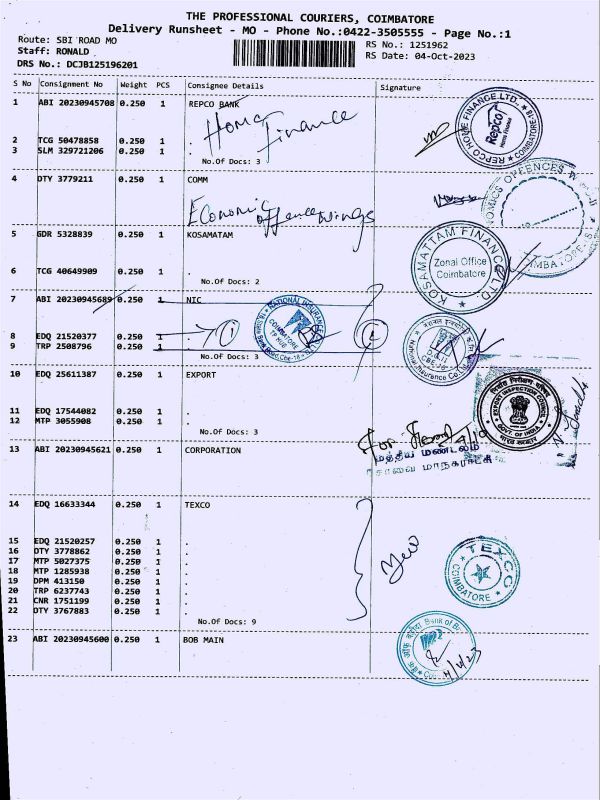 THE PROFESSIONAL COURIERS, COIMBATORE
Delivery Runsheet - MO - Phone No.:0422-3505555 - Page No.:1
Route: SBI ROAD MO
RS No.: 1251962
Staff: RONALD
RS Date: 04-Oct-2023
DRS No.: DCJB125196201
S No Consignment No Weight PCS Consignee Details Signature
1 ABI 20230945708 0.250 1 REPCO BANK
Home Finance
REPCO HOME FINANCE LTD.
Repco
Home Finance
2 TCG 50478858 0.250 1 .
3 SLM 329721206 0.250 1 .
No.Of Docs: 3
4 DTY 3779211 0.250 1 COMM
Economic offence wings
5 GDR 5328839 0.250 1 KOSAMATAM
KOSAMATTAM FINANCE LTD
Zonal Office
Coimbatore
6 TCG 40649909 0.250 1 .
No.Of Docs: 2
7 ABI 20230945689 0.250 1 NIC
NATIONAL INSURANCE
COIMBATORE
TP HUB
8 EDQ 21520377 0.250 1 .
9 TRP 2508796 0.250 1 .
No.Of Docs: 3
10 EDQ 25611387 0.250 1 EXPORT
EXPORT INSPECTION COUNCIL
GOVT. OF INDIA
11 EDQ 17544082 0.250 1 .
12 MTP 3055908 0.250 1 .
No.Of Docs: 3
13 ABI 20230945621 0.250 1 CORPORATION
மத்திய மண்டலம்
கோவை மாநகராட்சி
14 EDQ 16633344 0.250 1 TEXCO
15 EDQ 21520257 0.250 1 .
16 DTY 3778862 0.250 1 .
17 MTP 5027375 0.250 1 .
18 MTP 1285938 0.250 1 .
19 DPM 413150 0.250 1 .
20 TRP 6237743 0.250 1 .
21 CNR 1751199 0.250 1 .
22 DTY 3767883 0.250 1 .
TEXCO
COIMBATORE
No.Of Docs: 9
23 ABI 20230945600 0.250 1 BOB MAIN